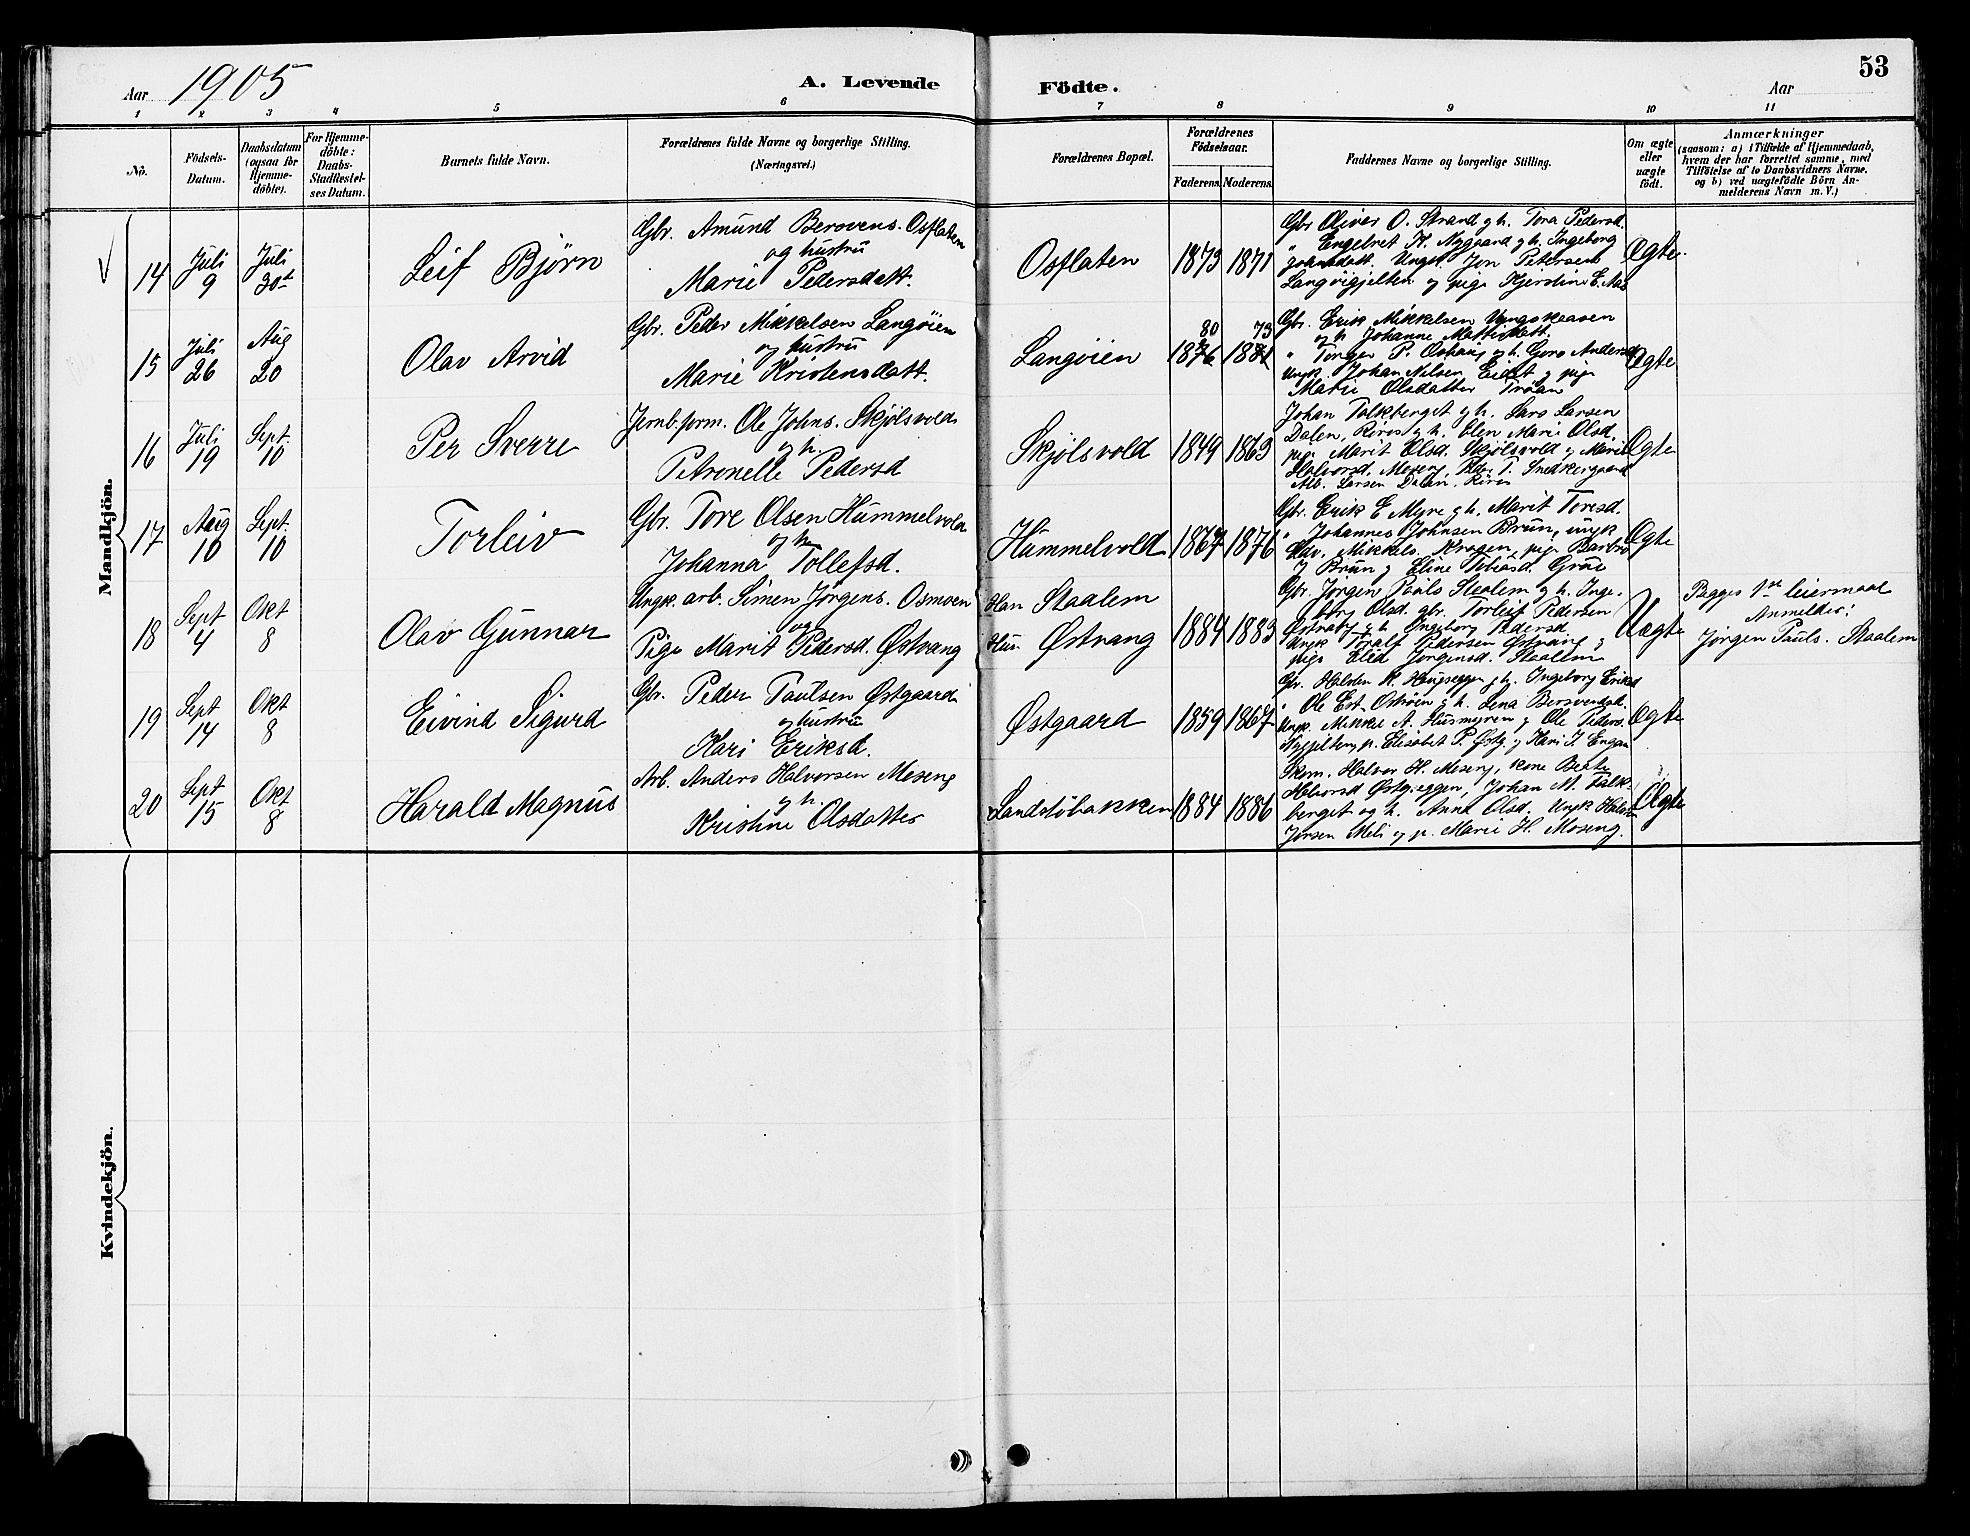 53
Aar 1905
A. Levende Födte.
Aar
1 2 3 4 5 6 7 8 9 10 11
No.
Födsels-
Datum.
Daabsdatum
(ogsaa for
Hjemme-
döbte).
For Hjemme-
döbte:
Daabs-
Stadfæstel-
ses Datum.
Barnets fulde Navn.
Forældrenes fulde Navne og borgerlige Stilling.
(Næringsvei.)
Forældrenes Bopæl.
Forældrenes
Födselsaar.
Faderens. Moderens.
Faddernes Navne og borgerlige Stilling.
Om ægte
eller
uægte
födt.
Anmærkninger
(saasom: a) i Tilfælde af Hjemmedaab,
hvem der har forrettet samme, med
Tilföielse af to Daabsvidners Navne,
og b) ved uægtefödte Börn An-
melderens Navn m. V.)
Mandkjön.
14
Juli
9
Juli
30te
Leif Bjørn
Gbr. Amund Berovens. Osflaten
og hustru
Marie Pedersdatt.
Osflaten
1873 1871
Gbr Oliver O. Strand g h. Tora Pedersd.
" Engebret H. Nygaard g h. Ingeborg
Johnsdatt. Ungk. Jon Petersen
Langøigjelten og pige Kjerstine E. Moe
Ægte.
15
Juli
26
Aug
20
Olav Arvid
Gbr. Peder Mikkelsen Langøien
og hustru
Marie Kristensdatt.
Langøien
80 73
1876 1881
Gbr. Erik Mikkelsen Vangskaasen
og h Johanne Mattisdatt
" Torger P. Oshaug og h. Goro Andersd
Ungk. Johan Nilsen Eidet og pige
Marie Olsdatter Trøan
Ægte
16
Juli
19
Sept.
10
Per Sverre
Jernb.form. Ole Johns. Skjølsvold
og h.
Petronelle Pedersd
Skjølsvold
1849 1863
Johan Falkberget g h. Lars Larsen
Dalen, Røros g h. Elen Marie Olsd.
pige Marit Olsd. Skjølsvold og Marie
Halvorsd. Moseng, T. Snedkergaard
Alb. Larsen Dalen, Røros
Ægte
17
Aug
10
Sept.
10
Torleiv
Gbr. Tore Olsen Hummelvold
og h
Johanna Tollefsd.
Hummelvold
1867 1876
Gbr. Erik E Myre g h. Marit Toresd.
" Johannes Johnsen Bruun, ungk
Edv. Mikkels. Kroken, pige Barbro
J Bruun og Eline Tobiasd. Grue
Ægte
18
Sept
4
Okt
8
Olav Gunnar
Ungk. arb. Simen Jørgens. Osmoen
og
Pige Marit Pedersd. Østvang
Han Staalem
Hun Østvang
1884 1883
Gbr. Jørgen Pauls Staalem g h. Inge.
borg Olsd. gbr. Torleif Pedersen
Østraby g h. Ingeborg Pedersd.
Ungk Toralf Pedersen Østvang og
pige Elid Jørgensd. Staalem
Uægte
Begges 1ste leiermaal
Anmelder:
Jørgen Pauls. Staalem
19
Sept
14
Okt
8
Eivind Sigurd
Gbr. Peder Paulsen Østgaard
og hustru
Kari Eriksd.
Østgaard
1859 1867
Gbr. Halsten K. Haugseggen g h. Ingeborg Eriksd
" Ole Est. Osøien g h. Lena Bersvendsd.
Ungk. Mikkel A. Husmyren og Ole Peders.
Nygjelten, p. Elisabet P. Østg. og Kari J. Engan
Ægte
20
Sept
15
Okt
8
Harald Magnus
Arb. Anders Halvorsen Moseng
g h.
Kristine Olsdatter
Landstøbakken
1884 1886
Skom. Halvor H. Moseng, kone Beate
Halvorsd Østgjeggen, Johan M. Falk-
berget og h. Anna Olsd. Ungk Halsten
Jørsen Meli og p. Marie H. Moseng.
Ægte
Kvindekjön.